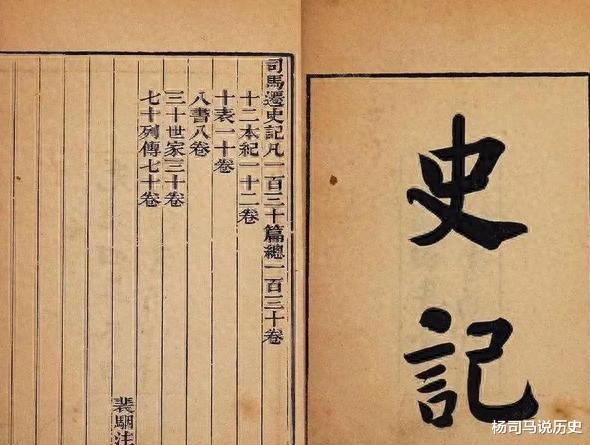 史記
司馬遷史記凡一百三十篇總一百三十卷
十二本紀一十二卷
十表一十卷
八書八卷
三十世家三十卷
七十列傳七十卷
裴駰注
杨司马说历史